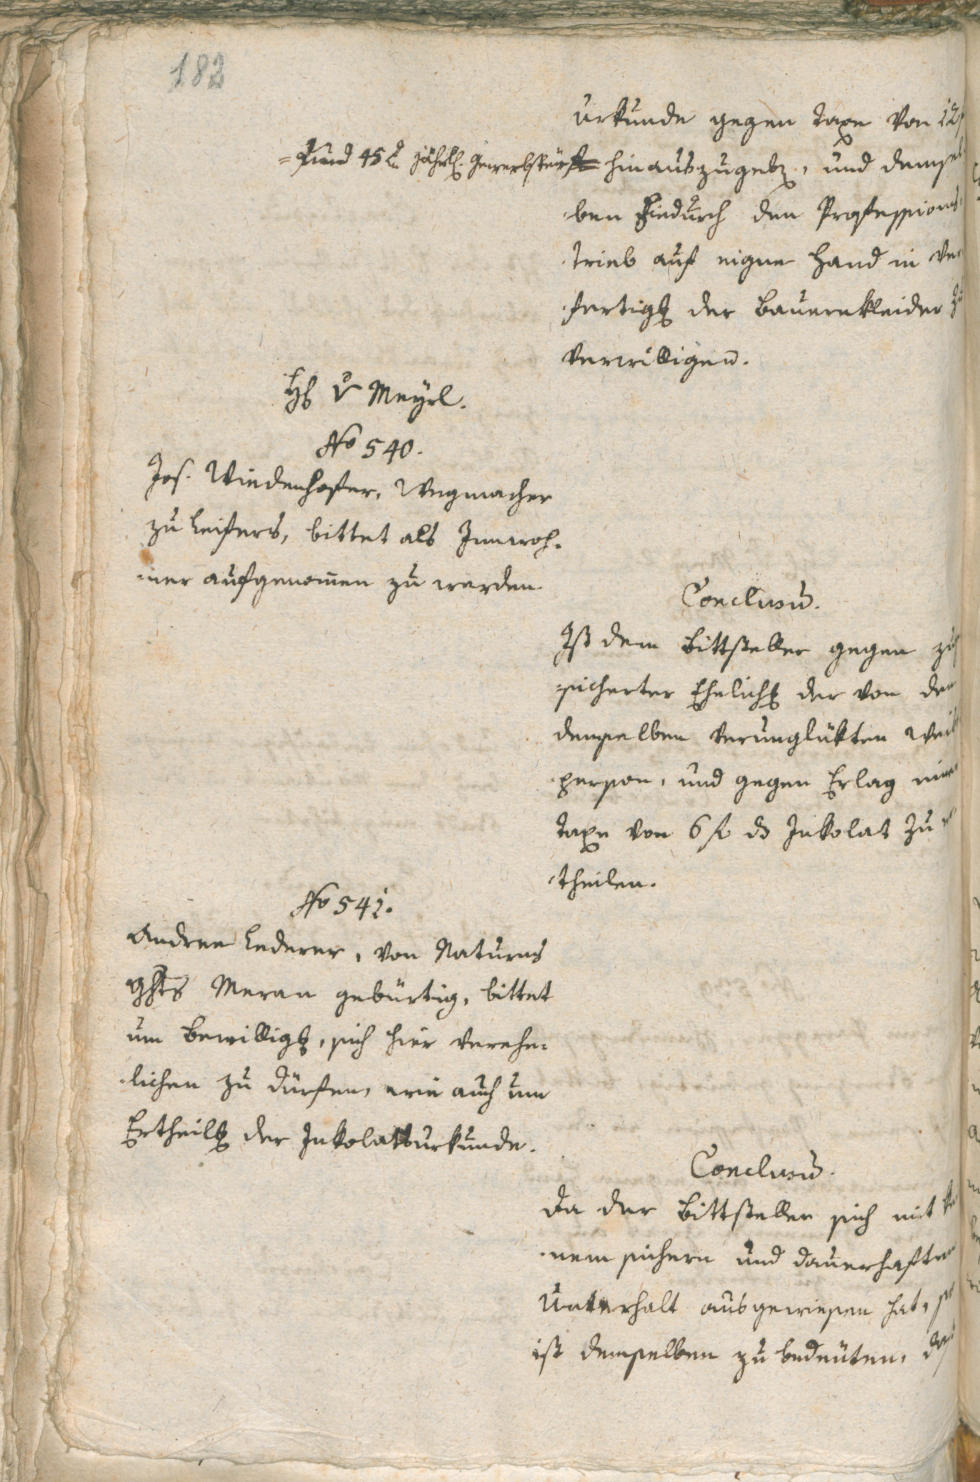 182
urkunde gegen Taxe von 12
= ⸗und 45 x jährl. Gewerbsteur hinauszugebg., und demsel
ben hiedurch den Professions
trieb auf eigne Hand in Ver
fertigg der Bauernkleider zu
verwilligen.
H v Meyrl.
No 540.
Jos. Wiedenhofer, Wegmacher
zu Leifers, bittet als Innwoh-
ner aufgenomen zu werden.
Conclusu.
Ist dem Bittsteller gegen zuge
sicherter Ehelichg der von dem
demselben verunglükten Weibs
person, und gegen Erlag einer
Taxe von 6 f das Inkolat zu er
theilen.
No 541.
Andree Lederer, von Naturns
Ghts Meran gebürtig, bittet
um Bewilligg, sich hier verehe-
lichen zu dürfen, wie auch um
Ertheilg der Inkolatsurkunde.
Conclusu.
Da der Bittsteller sich mit kei
nem sichern und dauerhaften
Unterhalt ausgewiesen hat, so
ist demselben zu bedeuten, daß